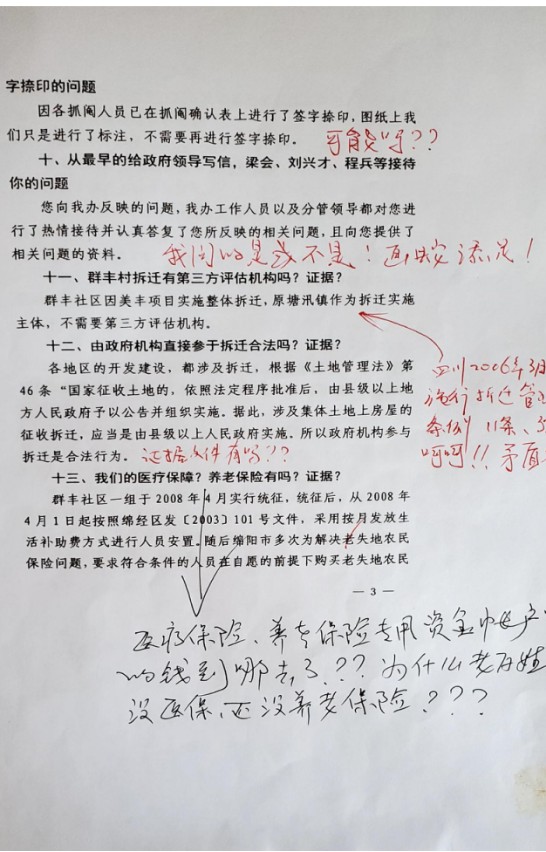 字捺印的问题
因各抓阄人员已在抓阄确认表上进行了签字捺印，图纸上我
们只是进行了标注，不需要再进行签字捺印。 可能吗??
十、从最早的给政府领导写信，梁会、刘兴才、程兵等接待
你的问题
您向我办反映的问题，我办工作人员以及分管领导都对您进
行了热情接待并认真答复了您所反映的相关问题，且向您提供了
相关问题的资料。 我问的是或不是！画蛇添足！
十一、群丰村拆迁有第三方评估机构吗？证据？
群丰社区因美丰项目实施整体拆迁，原塘汛镇作为拆迁实施
主体，不需要第三方评估机构。
十二、由政府机构直接参于拆迁合法吗？证据？
各地区的开发建设，都涉及拆迁，根据《土地管理法》第
46 条“国家征收土地的，依照法定程序批准后，由县级以上地
方人民政府予以公告并组织实施。据此，涉及集体土地上房屋的
征收拆迁，应当是由县级以上人民政府实施。所以政府机构参与
拆迁是合法行为。 证据文件有吗??
四川2006年3月
施行拆迁管
条例 11条、
呵呵!! 矛盾
十三、我们的医疗保障？养老保险有吗？证据？
群丰社区一组于 2008 年 4 月实行统征，统征后，从 2008 年
4 月 1 日起按照绵经区发〔2003〕101 号文件，采用按月发放生
活补助费方式进行人员安置。随后绵阳市多次为解决老失地农民
保险问题，要求符合条件的人员在自愿的前提下购买老失地农民
— 3 —
医疗保险、养老保险专用资金
的钱到哪去了?? 为什么老百姓
没医保，还没养老保险???